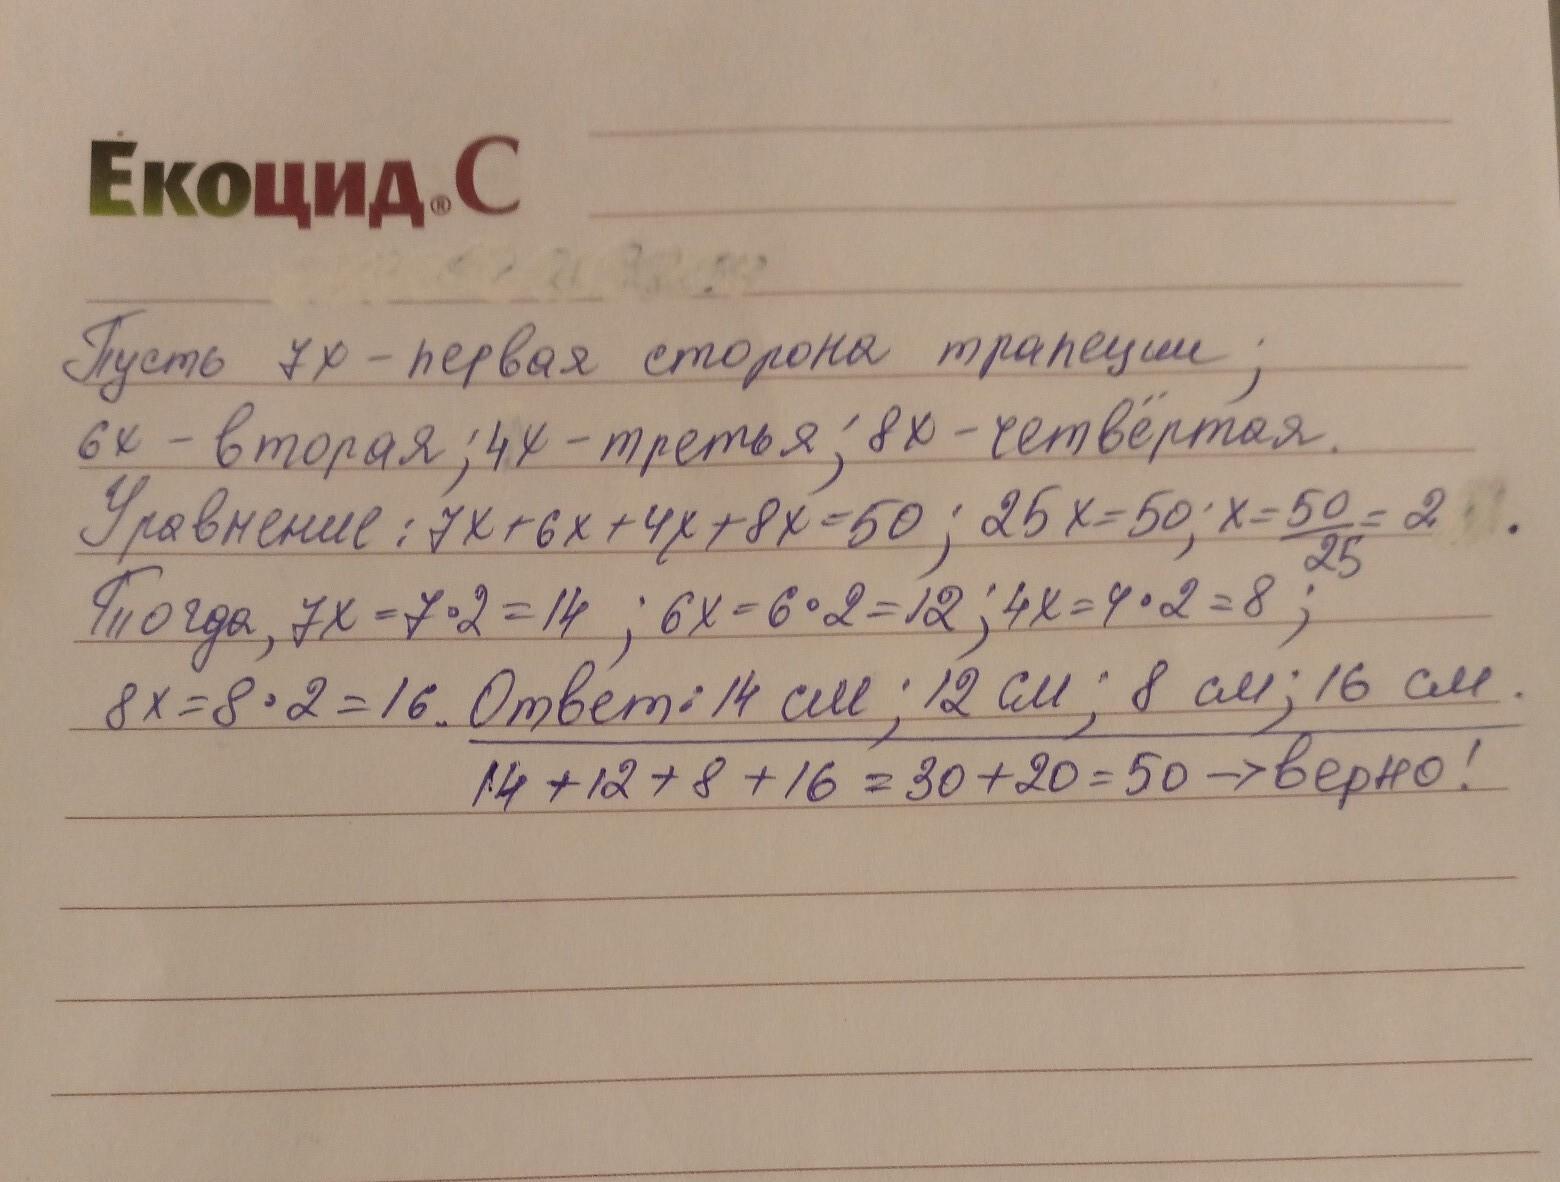 Екоцид® С
Пусть 7х – первая сторона трапеции;
6х – вторая; 4х – третья; 8х – четвёртая.
Уравнение: 7х+6х+4х+8х=50; 25х=50; х=50/25=2.
Тогда, 7х=7•2=14; 6х=6•2=12; 4х=4•2=8;
8х=8•2=16. Ответ: 14 см; 12 см; 8 см; 16 см.
14+12+8+16=30+20=50 → верно!